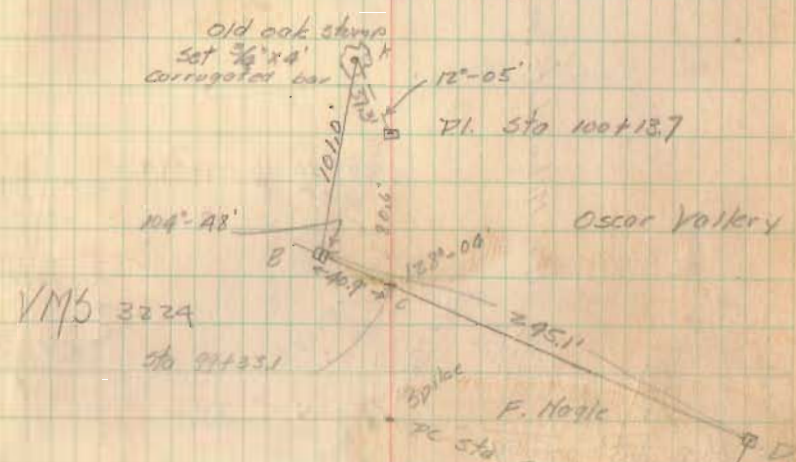 old oak stump A
Set 3/4" x 4'
corrugated bar
12°-05'
37.3'
P.I. Sta 100+13.7
101.0'
80.6'
104°-48'
Oscar Vallery
B
128°-04'
40.9'
C
VMS 3224
245.1'
Sta 99+33.1
Spike
F. Nagle
PC Sta
D